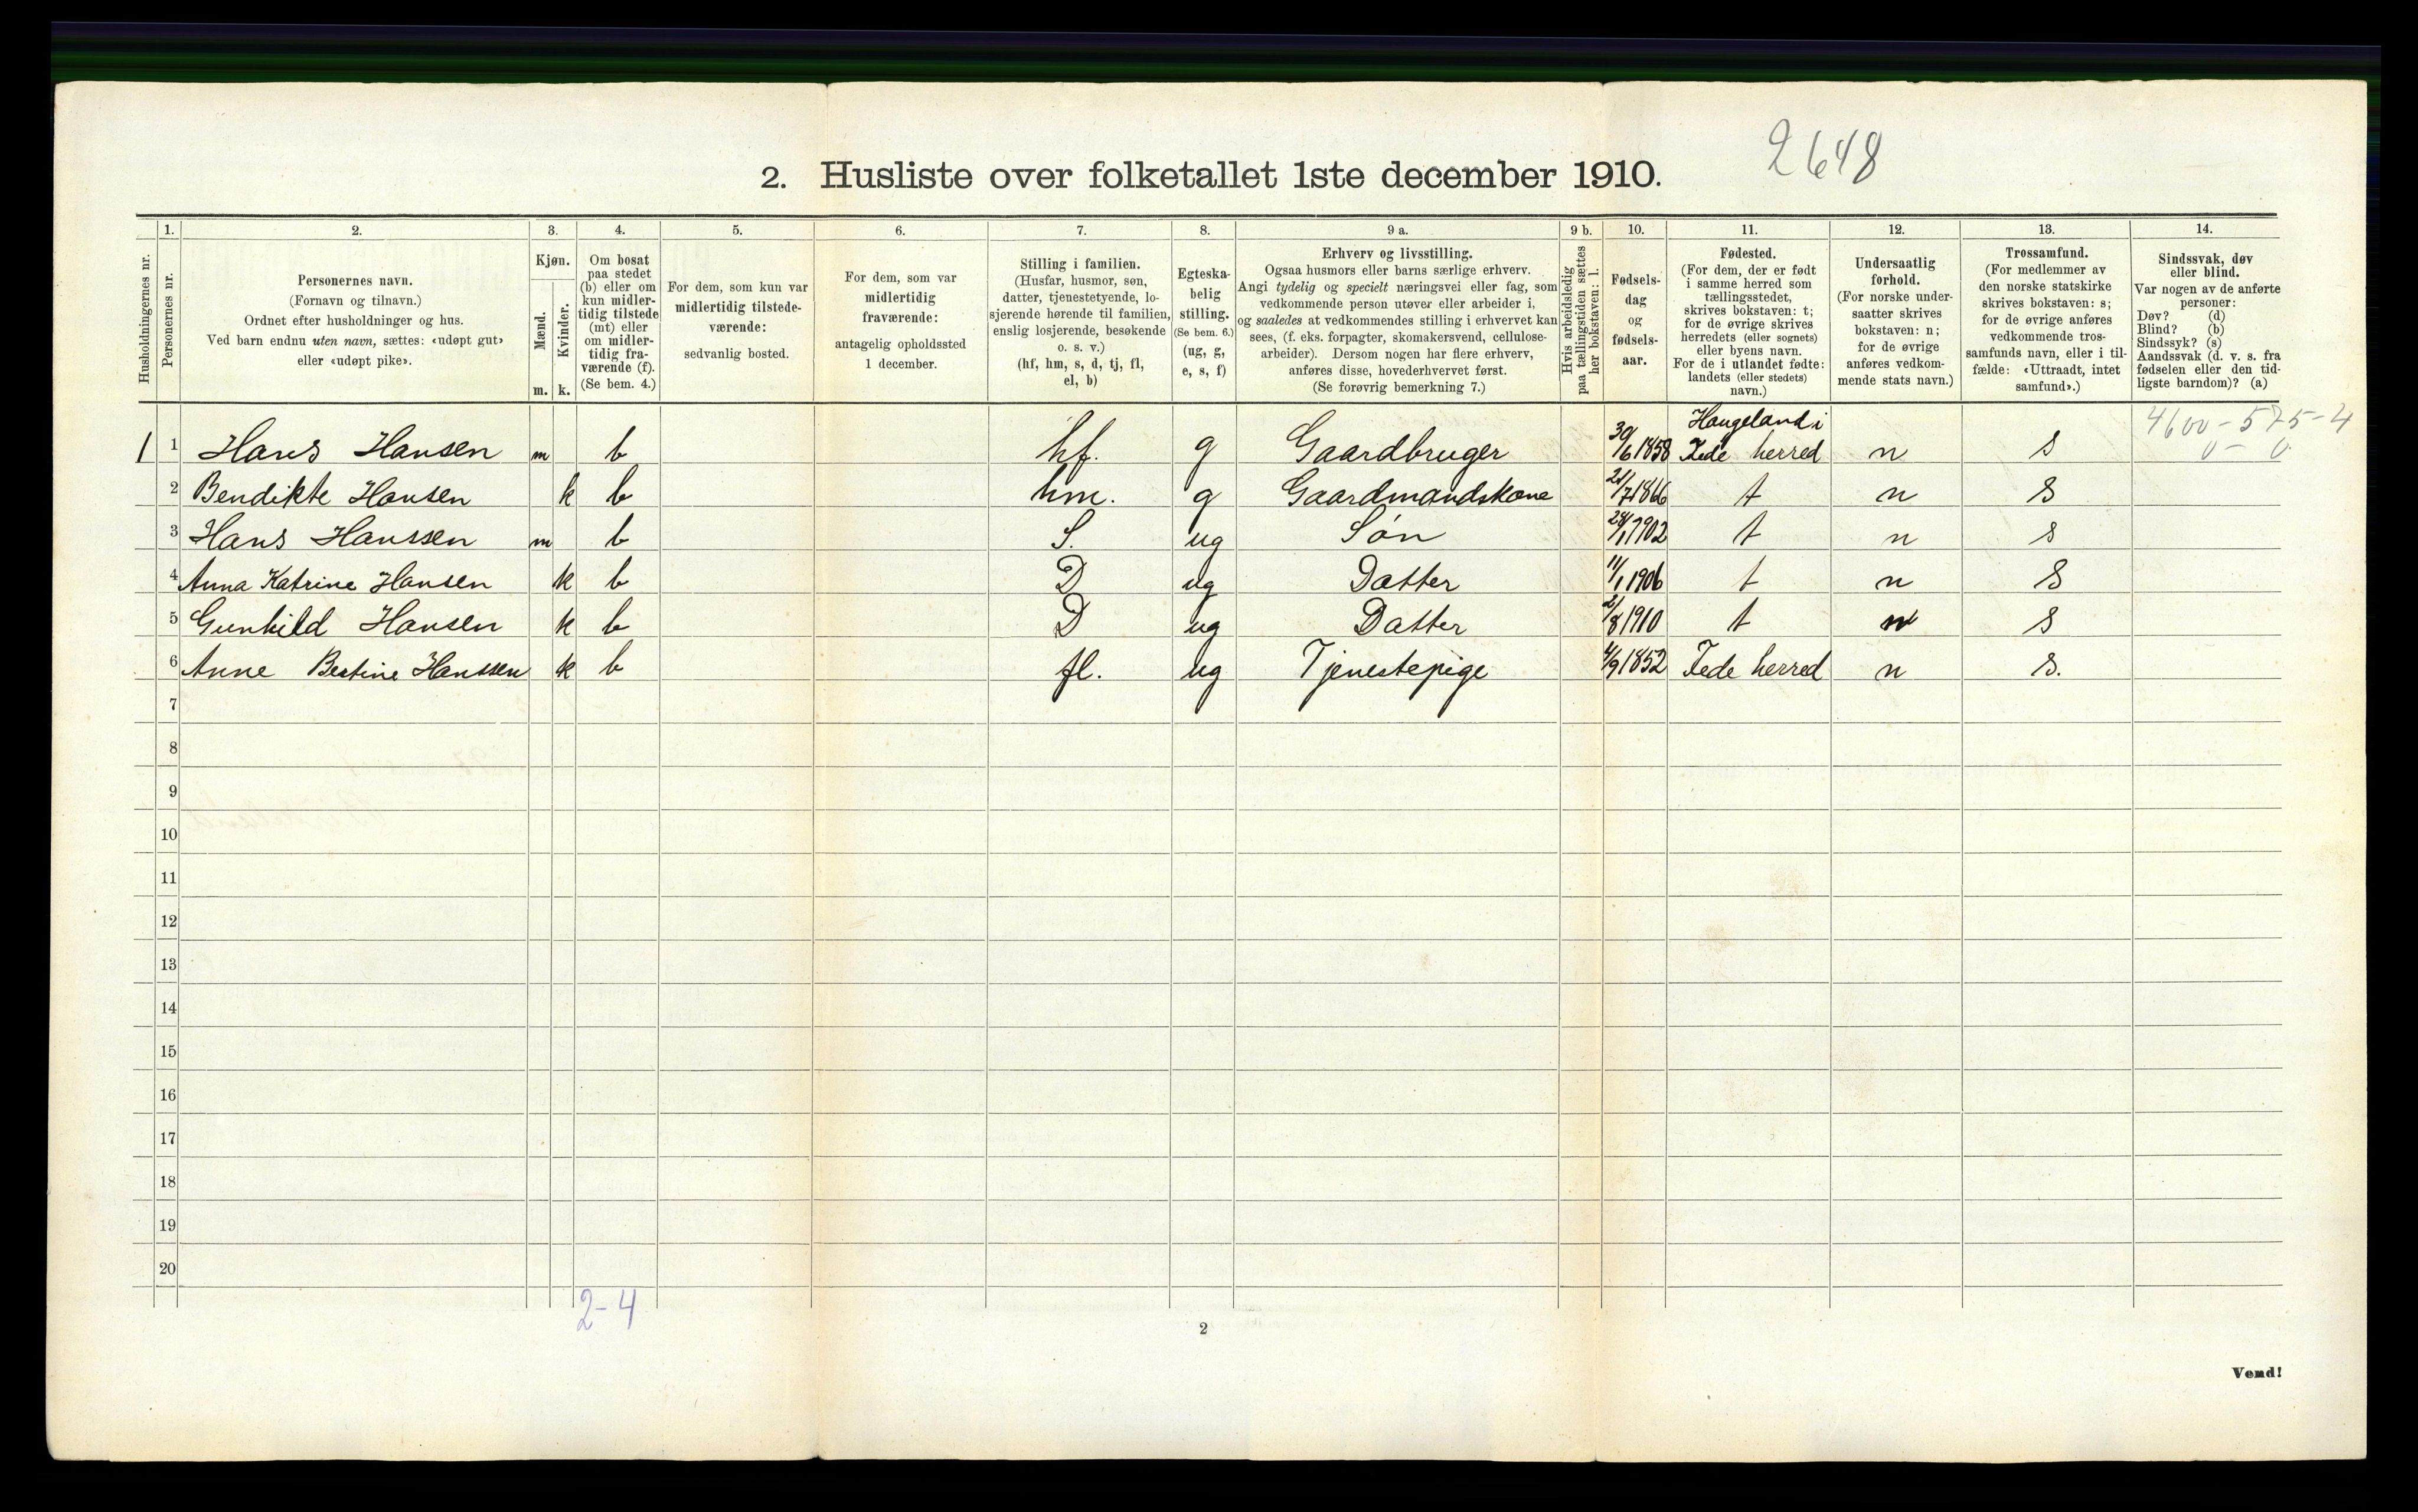 2648
2. Husliste over folketallet 1ste december 1910.
Husholdningernes nr.
1. Personernes nr.
2. Personernes navn. (Fornavn og tilnavn.) Ordnet efter husholdninger og hus. Ved barn endnu uten navn, sættes: «udøpt gut» eller «udøpt pike».
3. Kjøn. Mænd. m. Kvinder. k.
4. Om bosat paa stedet (b) eller om kun midlertidig tilstede (mt) eller om midlertidig fraværende (f). (Se bem. 4.)
5. For dem, som kun var midlertidig tilstedeværende: sedvanlig bosted.
6. For dem, som var midlertidig fraværende: antagelig opholdssted 1 december.
7. Stilling i familien. (Husfar, husmor, søn, datter, tjenestetyende, losjerende hørende til familien, enslig losjerende, besøkende o. s. v.) (hf, hm, s, d, tj, fl, el, b)
8. Egteskabelig stilling. (Se bem. 6.) (ug, g, e, s, f)
9 a. Erhverv og livsstilling. Ogsaa husmors eller barns særlige erhverv. Angi tydelig og specielt næringsvei eller fag, som vedkommende person utøver eller arbeider i, og saaledes at vedkommendes stilling i erhvervet kan sees, (f. eks. forpagter, skomakersvend, cellulosearbeider). Dersom nogen har flere erhverv, anføres disse, hovederhvervet først. (Se forøvrig bemerkning 7.)
9 b. Hvis arbeidsledig paa tællingstiden sættes her bokstaven: l.
10. Fødselsdag og fødselsaar.
11. Fødested. (For dem, der er født i samme herred som tællingsstedet, skrives bokstaven: t; for de øvrige skrives herredets (eller sognets) eller byens navn. For de i utlandet fødte: landets (eller stedets) navn.)
12. Undersaatlig forhold. (For norske undersaatter skrives bokstaven: n; for de øvrige anføres vedkommende stats navn.)
13. Trossamfund. (For medlemmer av den norske statskirke skrives bokstaven: s; for de øvrige anføres vedkommende trossamfunds navn, eller i tilfælde: «Uttraadt, intet samfund».)
14. Sindssvak, døv eller blind. Var nogen av de anførte personer: Døv? (d) Blind? (b) Sindssyk? (s) Aandssvak (d. v. s. fra fødselen eller den tidligste barndom)? (a)
4600-575-4
0 - 0
1 1 Hans Hansen m b hf. g Gaardbruger 30/6 1858 Haugeland i Fede herred n s
2 Bendikte Hansen k b hm. g Gaardmandskone 21/7 1866 t n s
3 Hans Hanssen m b S. ug Søn 28/1 1902 t n s
4 Anna Katrine Hansen k b D ug Datter 11/1 1906 t n s
5 Gunhild Hansen k b D ug Datter 2/8 1910 t n s
6 Anne Bertine Hanssen k b fl. ug Tjenestepige 4/9 1852 Fede herred n s.
7
8
9
10
11
12
13
14
15
16
17
18
19
20
2-4
2
Vend!